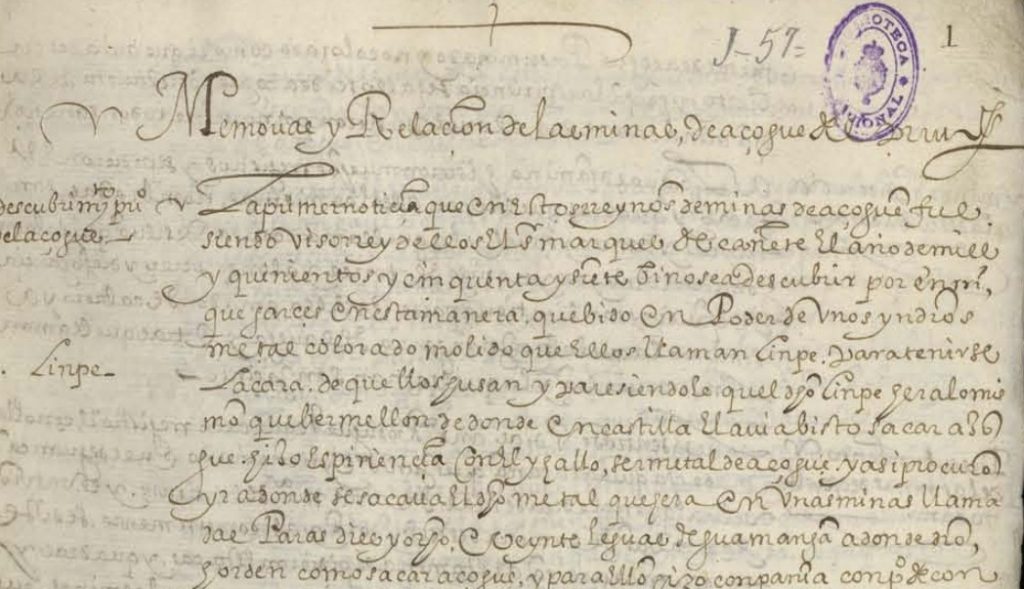 J-57=
BIBLIOTECA NACIONAL
1
Memorias y Relaçion de las minas, de açogue del piru
descubrimyto pro
del açogue
La primer noticia que en estos rreynos de minas de açogue fue
siendo visorrey de ellos el sr marques de cañete el año de mill
y quinientos y cinquenta y siete bino se a descubrir por enrri,
que garçes en esta manera. que bido en Poder de vnos yndios
metal colorado molido que ellos llaman linpe. para tenirse
Linpe
la cara. de que llos husan y paresiendole quel dho linpe hera lo mis
mo que bermellon de donde en castilla el avia bisto sacar azo
gue. hizo espiriençia con el y hallo, ser metal de açogue. y asi procuro
yr a donde se sacava el dho metal que hera en vnas minas llama
das Paras diez y ocho. o veynte leguas de guamanga a donde dio,
horden como sacar açogue, y para ello hizo conpania con po de con